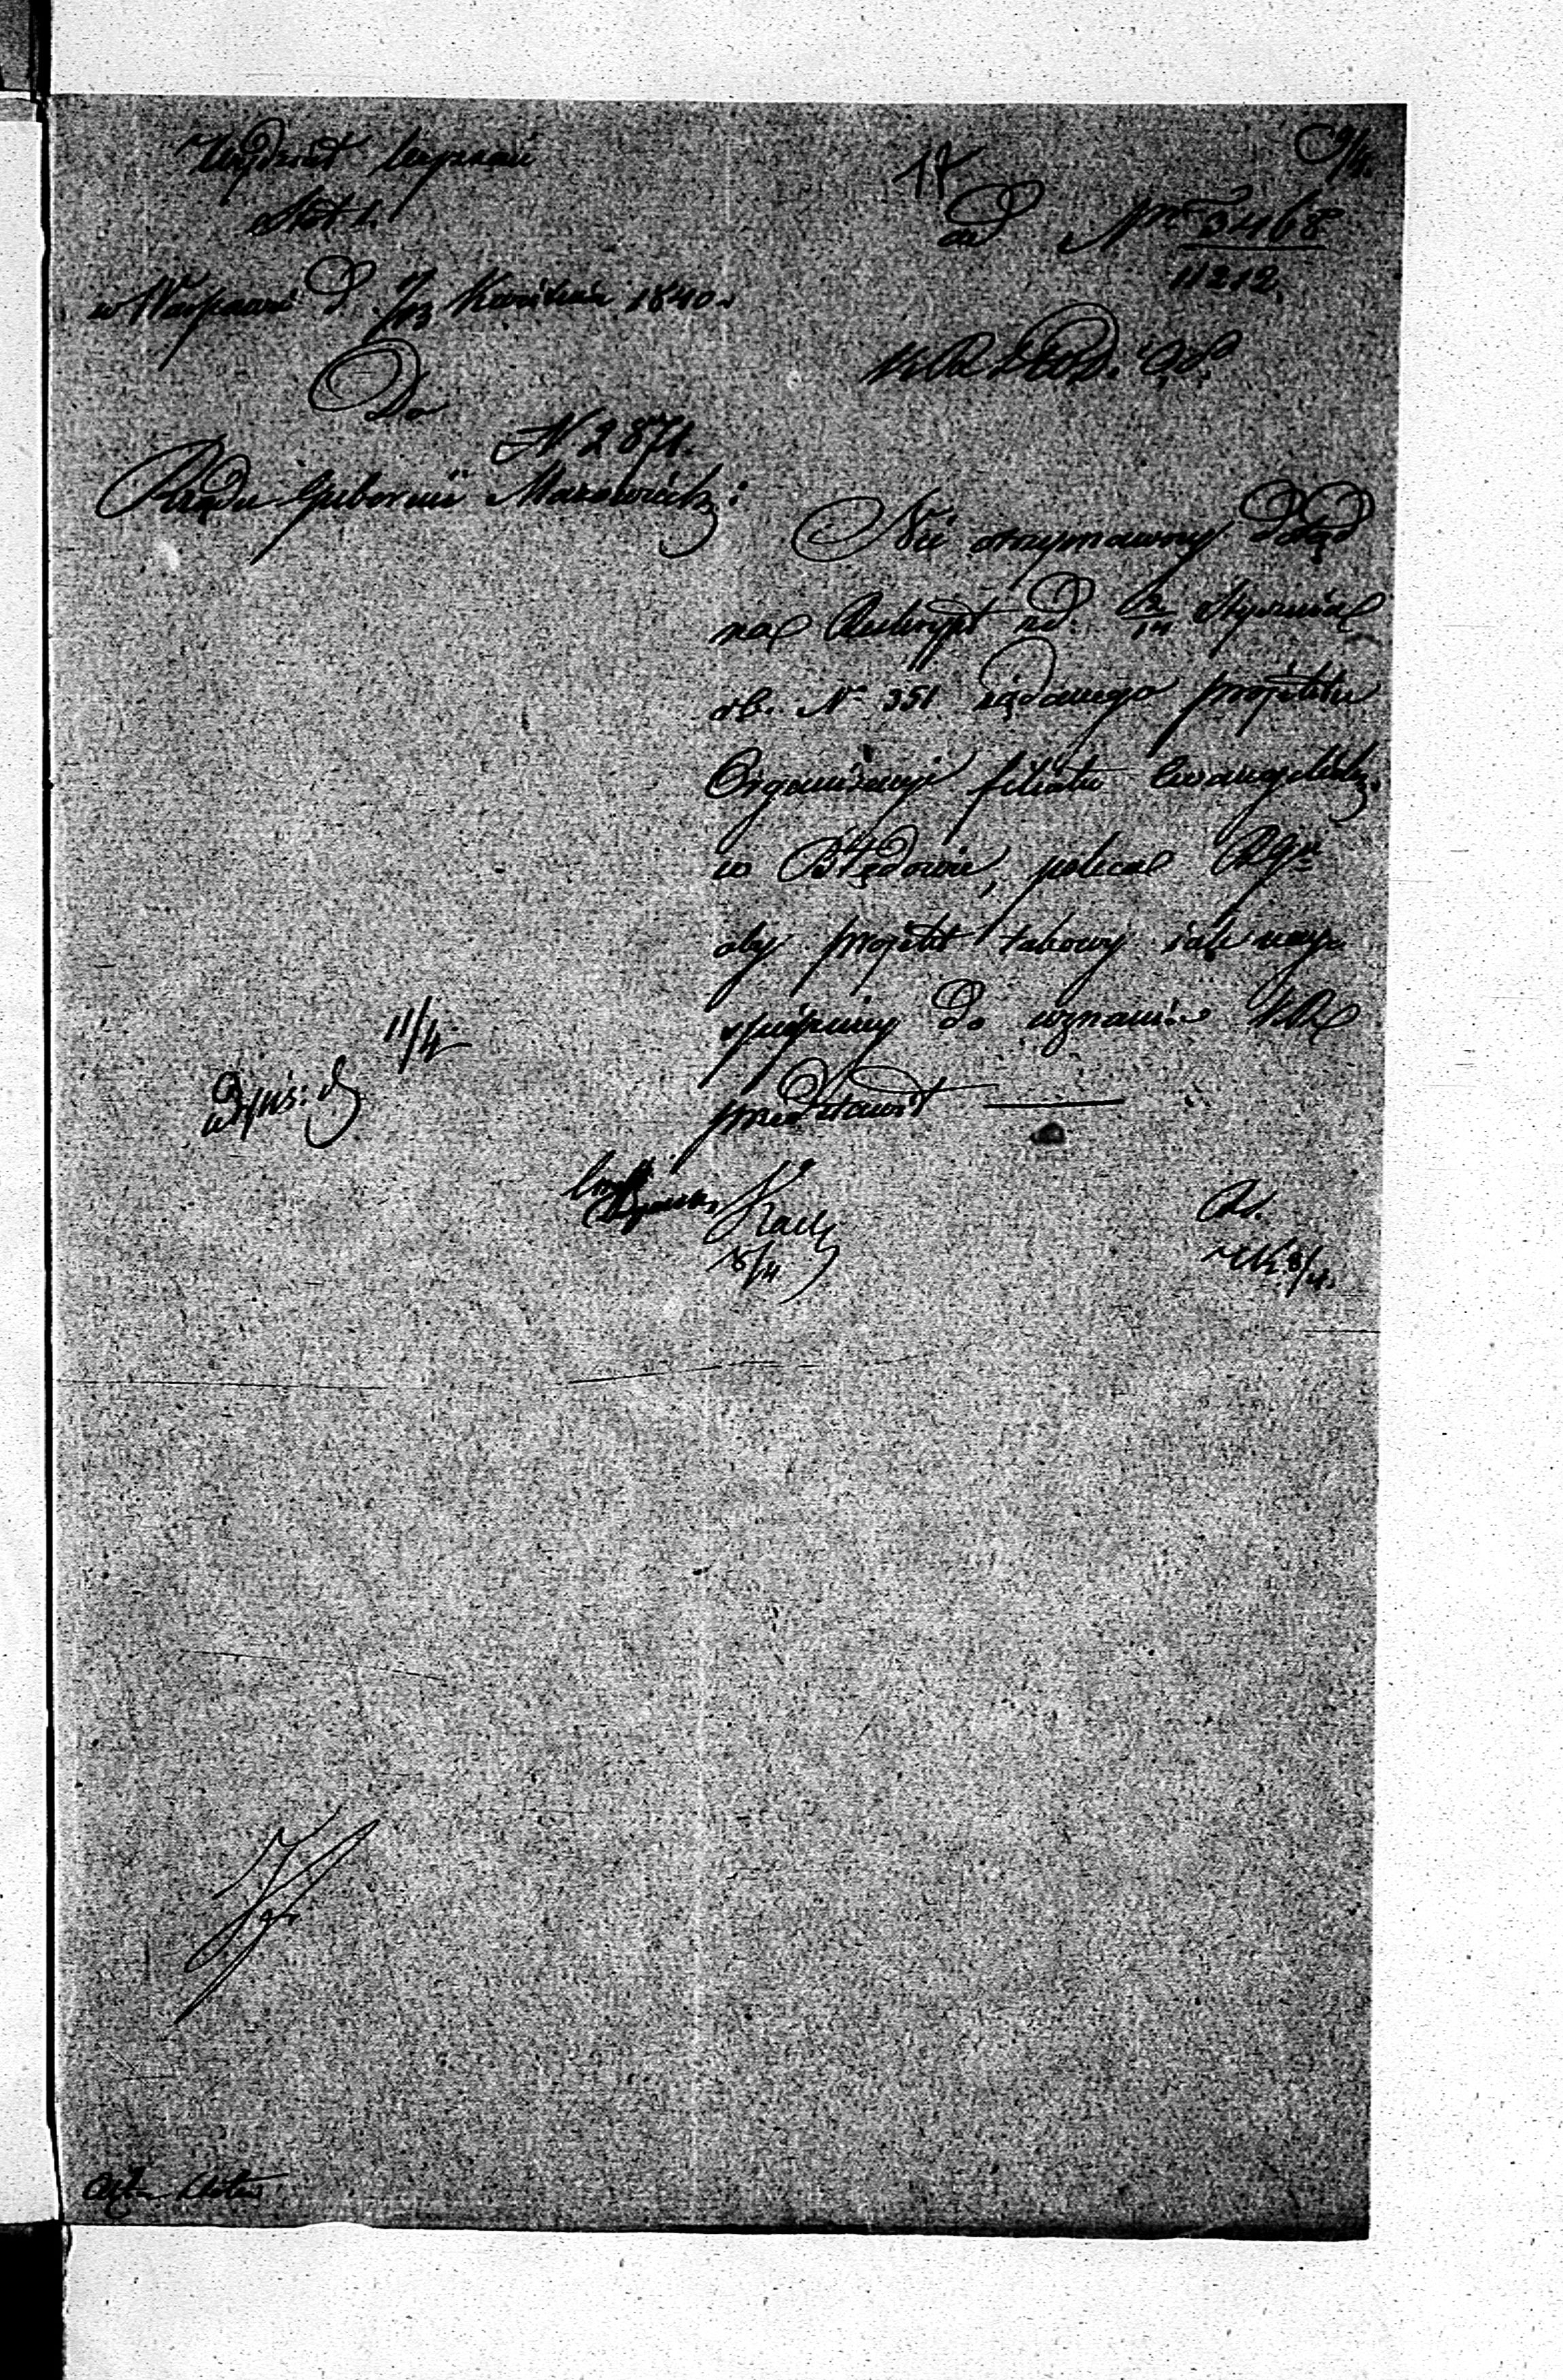 Wydział Wyznań
Stół 1.
w Warszawie d. 1/13 Kwietnia 1840.
Do
N 2871.
Rządu Gubernii Mazowieck:
17
9/4.
ad Nrm 3468
11212.
Nie otrzymawszy dotąd
na Reskrypt z d. 2/14 Stycznia
rb. N 351 żądanego projektu
Organizacyi filiału Ewangelick.
w Błędowie, poleca RGu
aby projekt takowy jak nay
spieszniej do uznania KR
przedstawił
11/4
8/4
8/4.